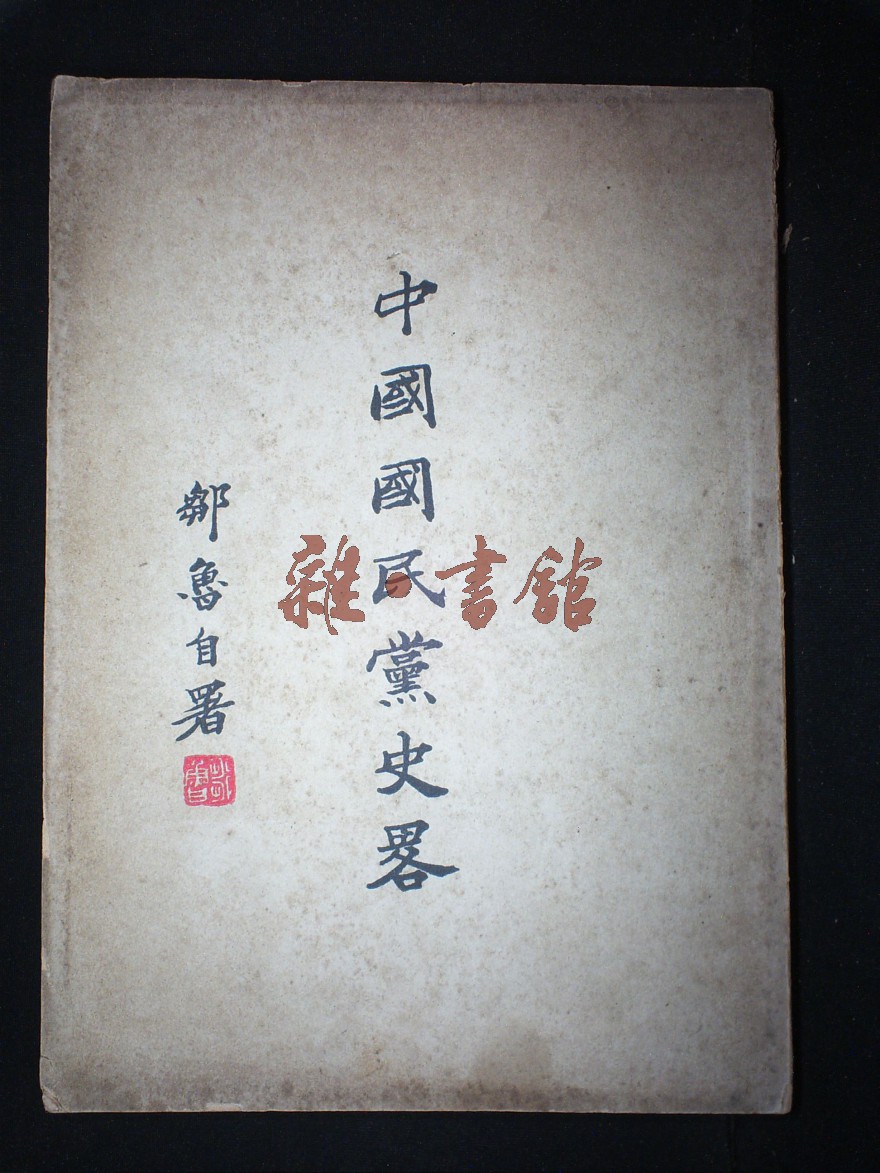 中國國民黨史畧
鄒魯自署
鄒魯
雜·書館